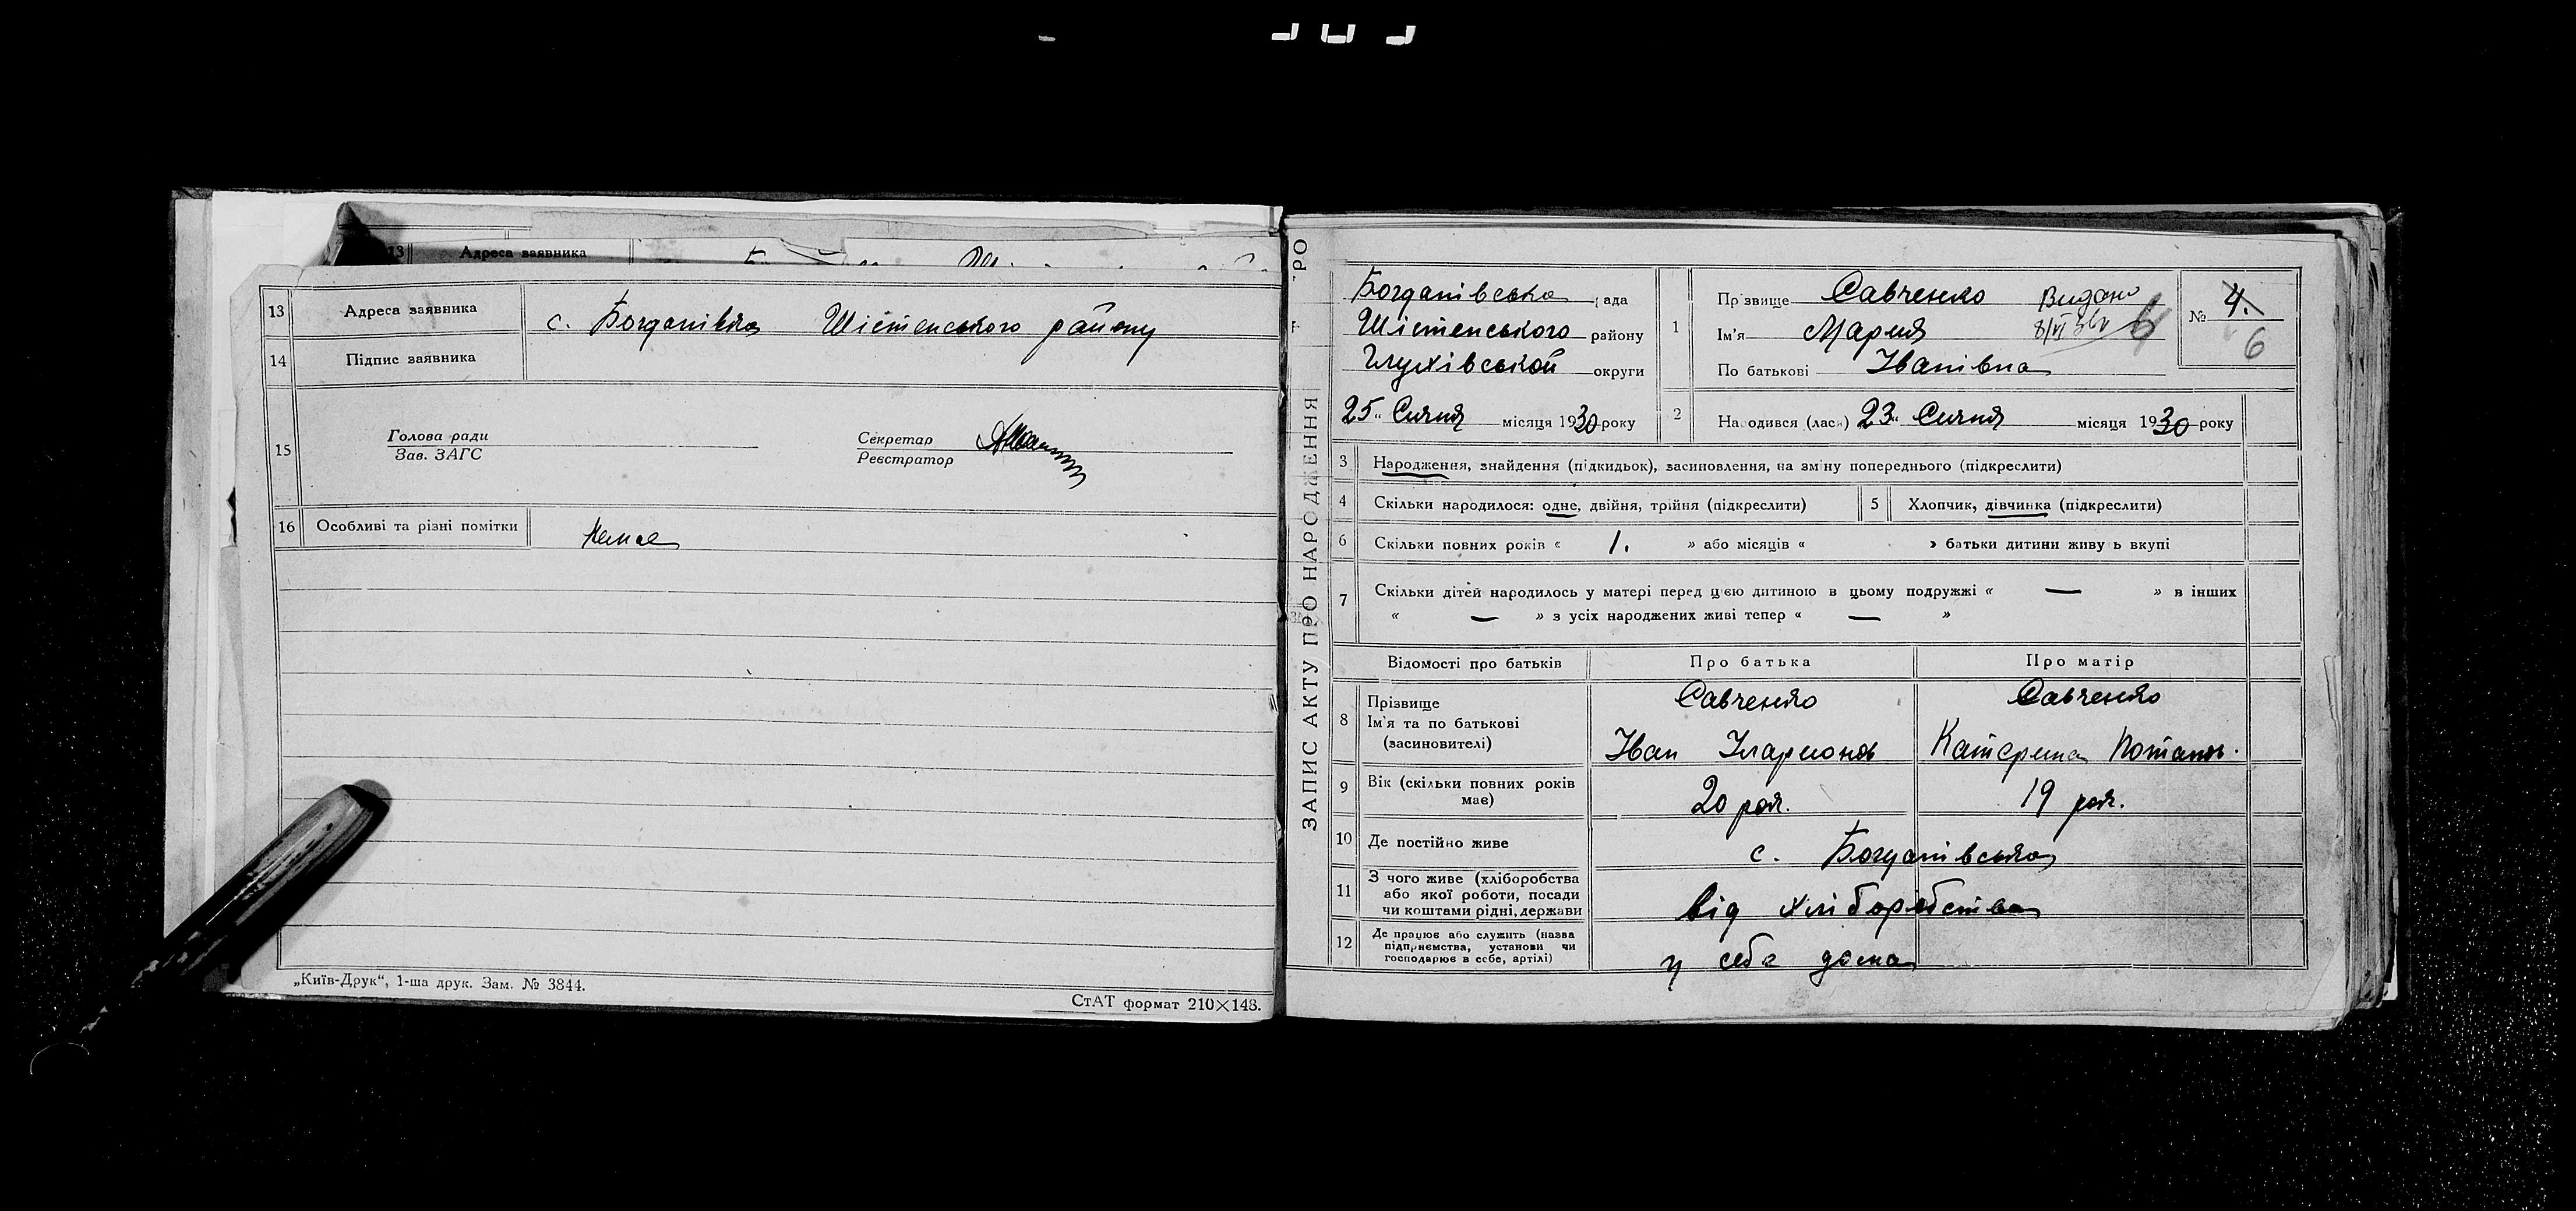 13 Адреса заявника
13 Адреса заявника с. Богданівка Шістенського району
14 Підпис заявника
15 Голова ради Секретар
Зав. ЗАГС Реєстратор
16 Особливі та різні помітки Немає
„Київ-Друк“, 1-ша друк. Зам. № 3844.
СтАТ формат 210×148.
РО
ЗАПИС АКТУ ПРО НАРОДЖЕННЯ
Богданівська рада
Шістенського району
Глухівської округи
25 „ Січня місяця 1930 року
1 Прізвище Савченко Видано
Ім'я Мария 8/VI 36р 6
По батькові Іванівна
№ 4.
6
2 Народився (лася) 23 „ Січня місяця 1930 року
3 Народження, знайдення (підкидьок), засиновлення, на зміну попереднього (підкреслити)
4 Скільки народилося: одне, двійня, трійня (підкреслити) 5 Хлопчик, дівчинка (підкреслити)
6 Скільки повних років « 1. » або місяців « » батьки дитини живуть вкупі
7 Скільки дітей народилось у матері перед цією дитиною в цьому подружжі « — » в інших
« — » з усіх народжених живі тепер « — »
Відомості про батьків Про батька Про матір
8 Прізвище Савченко Савченко
Ім'я та по батькові
(засиновителі) Іван Іларионов Катерина Потапов.
9 Вік (скільки повних років
має) 20 рок. 19 рок.
10 Де постійно живе с. Богданівська
11 З чого живе (хліборобства
або якої роботи, посади
чи коштами рідні, держави від хліборобства
12 Де працює або служить (назва
підприємства, установи чи
господарює в себе, артілі) у себе дома